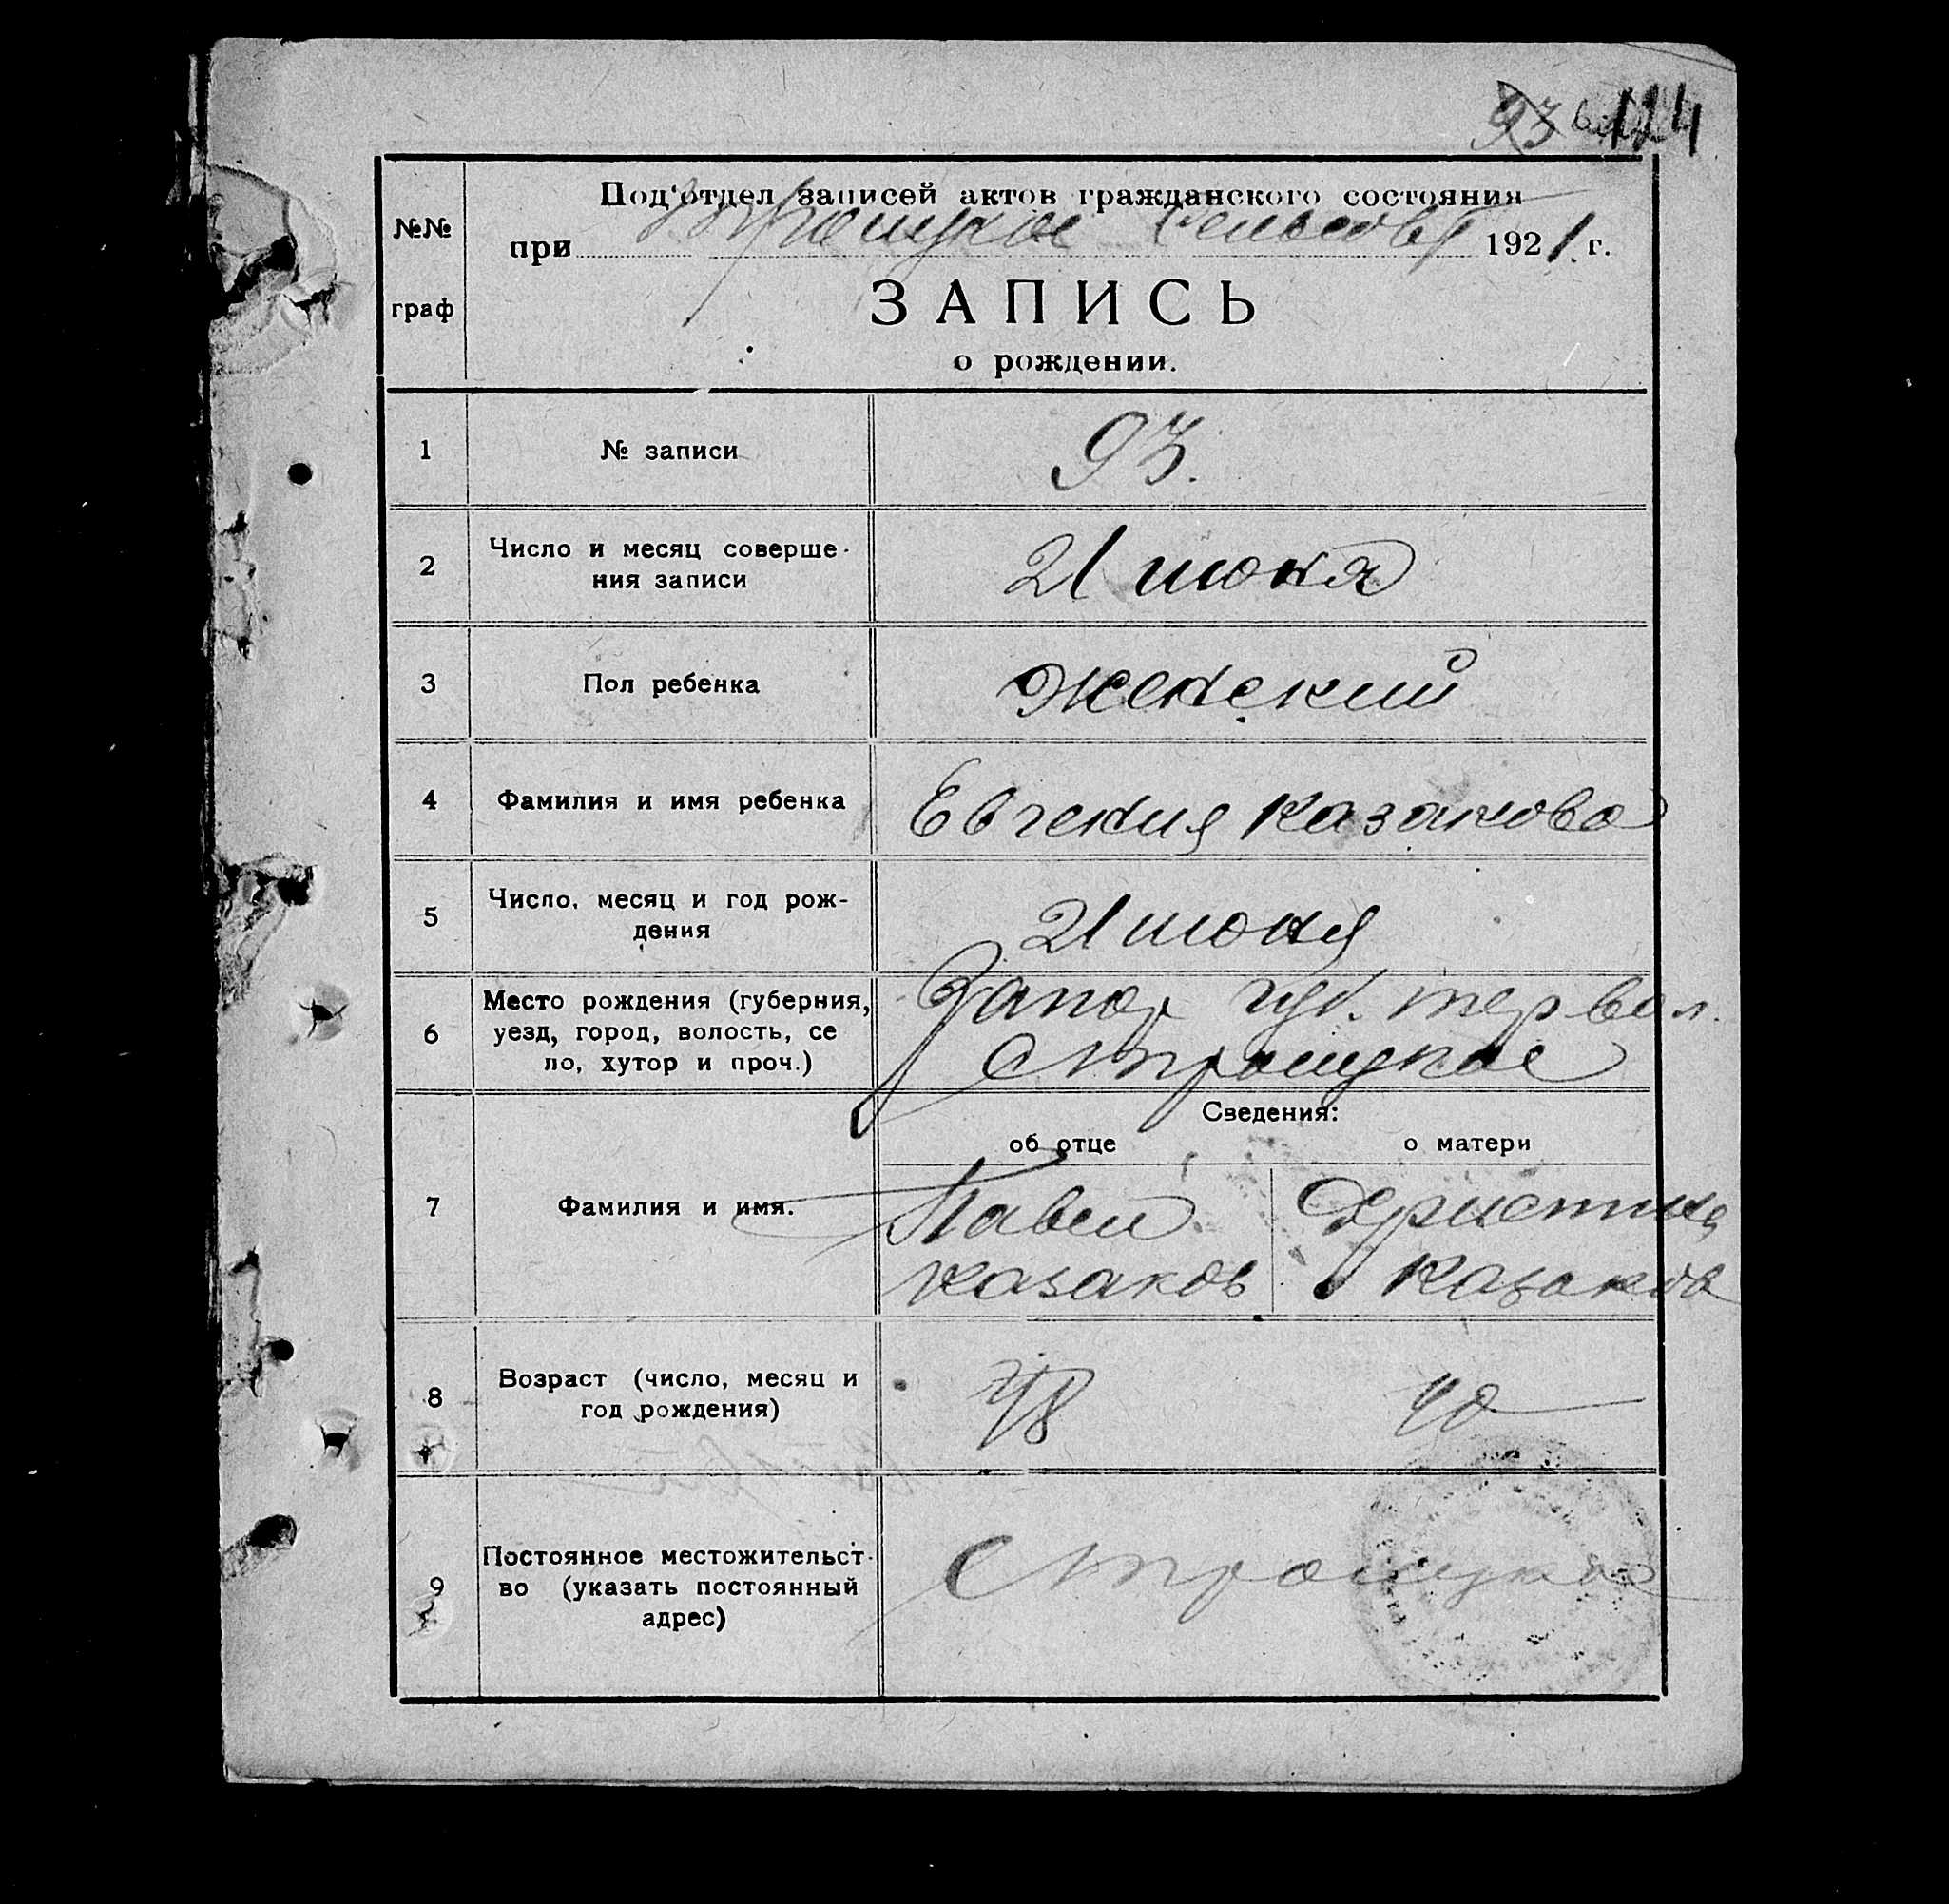 93 124
№№ граф
Под'отдел записей актов гражданского состояния
при Троицкое сельсовет 1921 г.
ЗАПИСЬ
о рождении.
1 № записи 93.
2 Число и месяц соверше-
ния записи 21 июня
3 Пол ребенка женский
4 Фамилия и имя ребенка Евгения Казакова
5 Число, месяц и год рож-
дения 21 июня
6 Место рождения (губерния, Запор губ. тер вол.
уезд, город, волость, се
ло, хутор и проч.) С Троицкое
Сведения:
об отце о матери
7 Фамилия и имя. Павел Христина
Казаков Казакова
8 Возраст (число, месяц и
год рождения) 48 40
9 Постоянное местожительст-
во (указать постоянный
адрес) С Троицкое